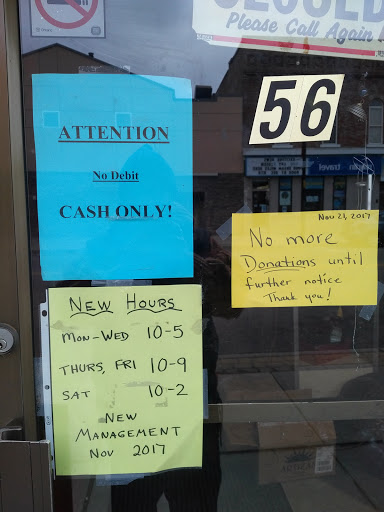 CLOSED
Please Call Again
56
ATTENTION
No Debit
CASH ONLY!
Nov 21, 2017
No more
Donations until
further notice
Thank you!
NEW HOURS
MON-WED 10-5
THURS, FRI 10-9
SAT 10-2
NEW
MANAGEMENT
NOV 2017